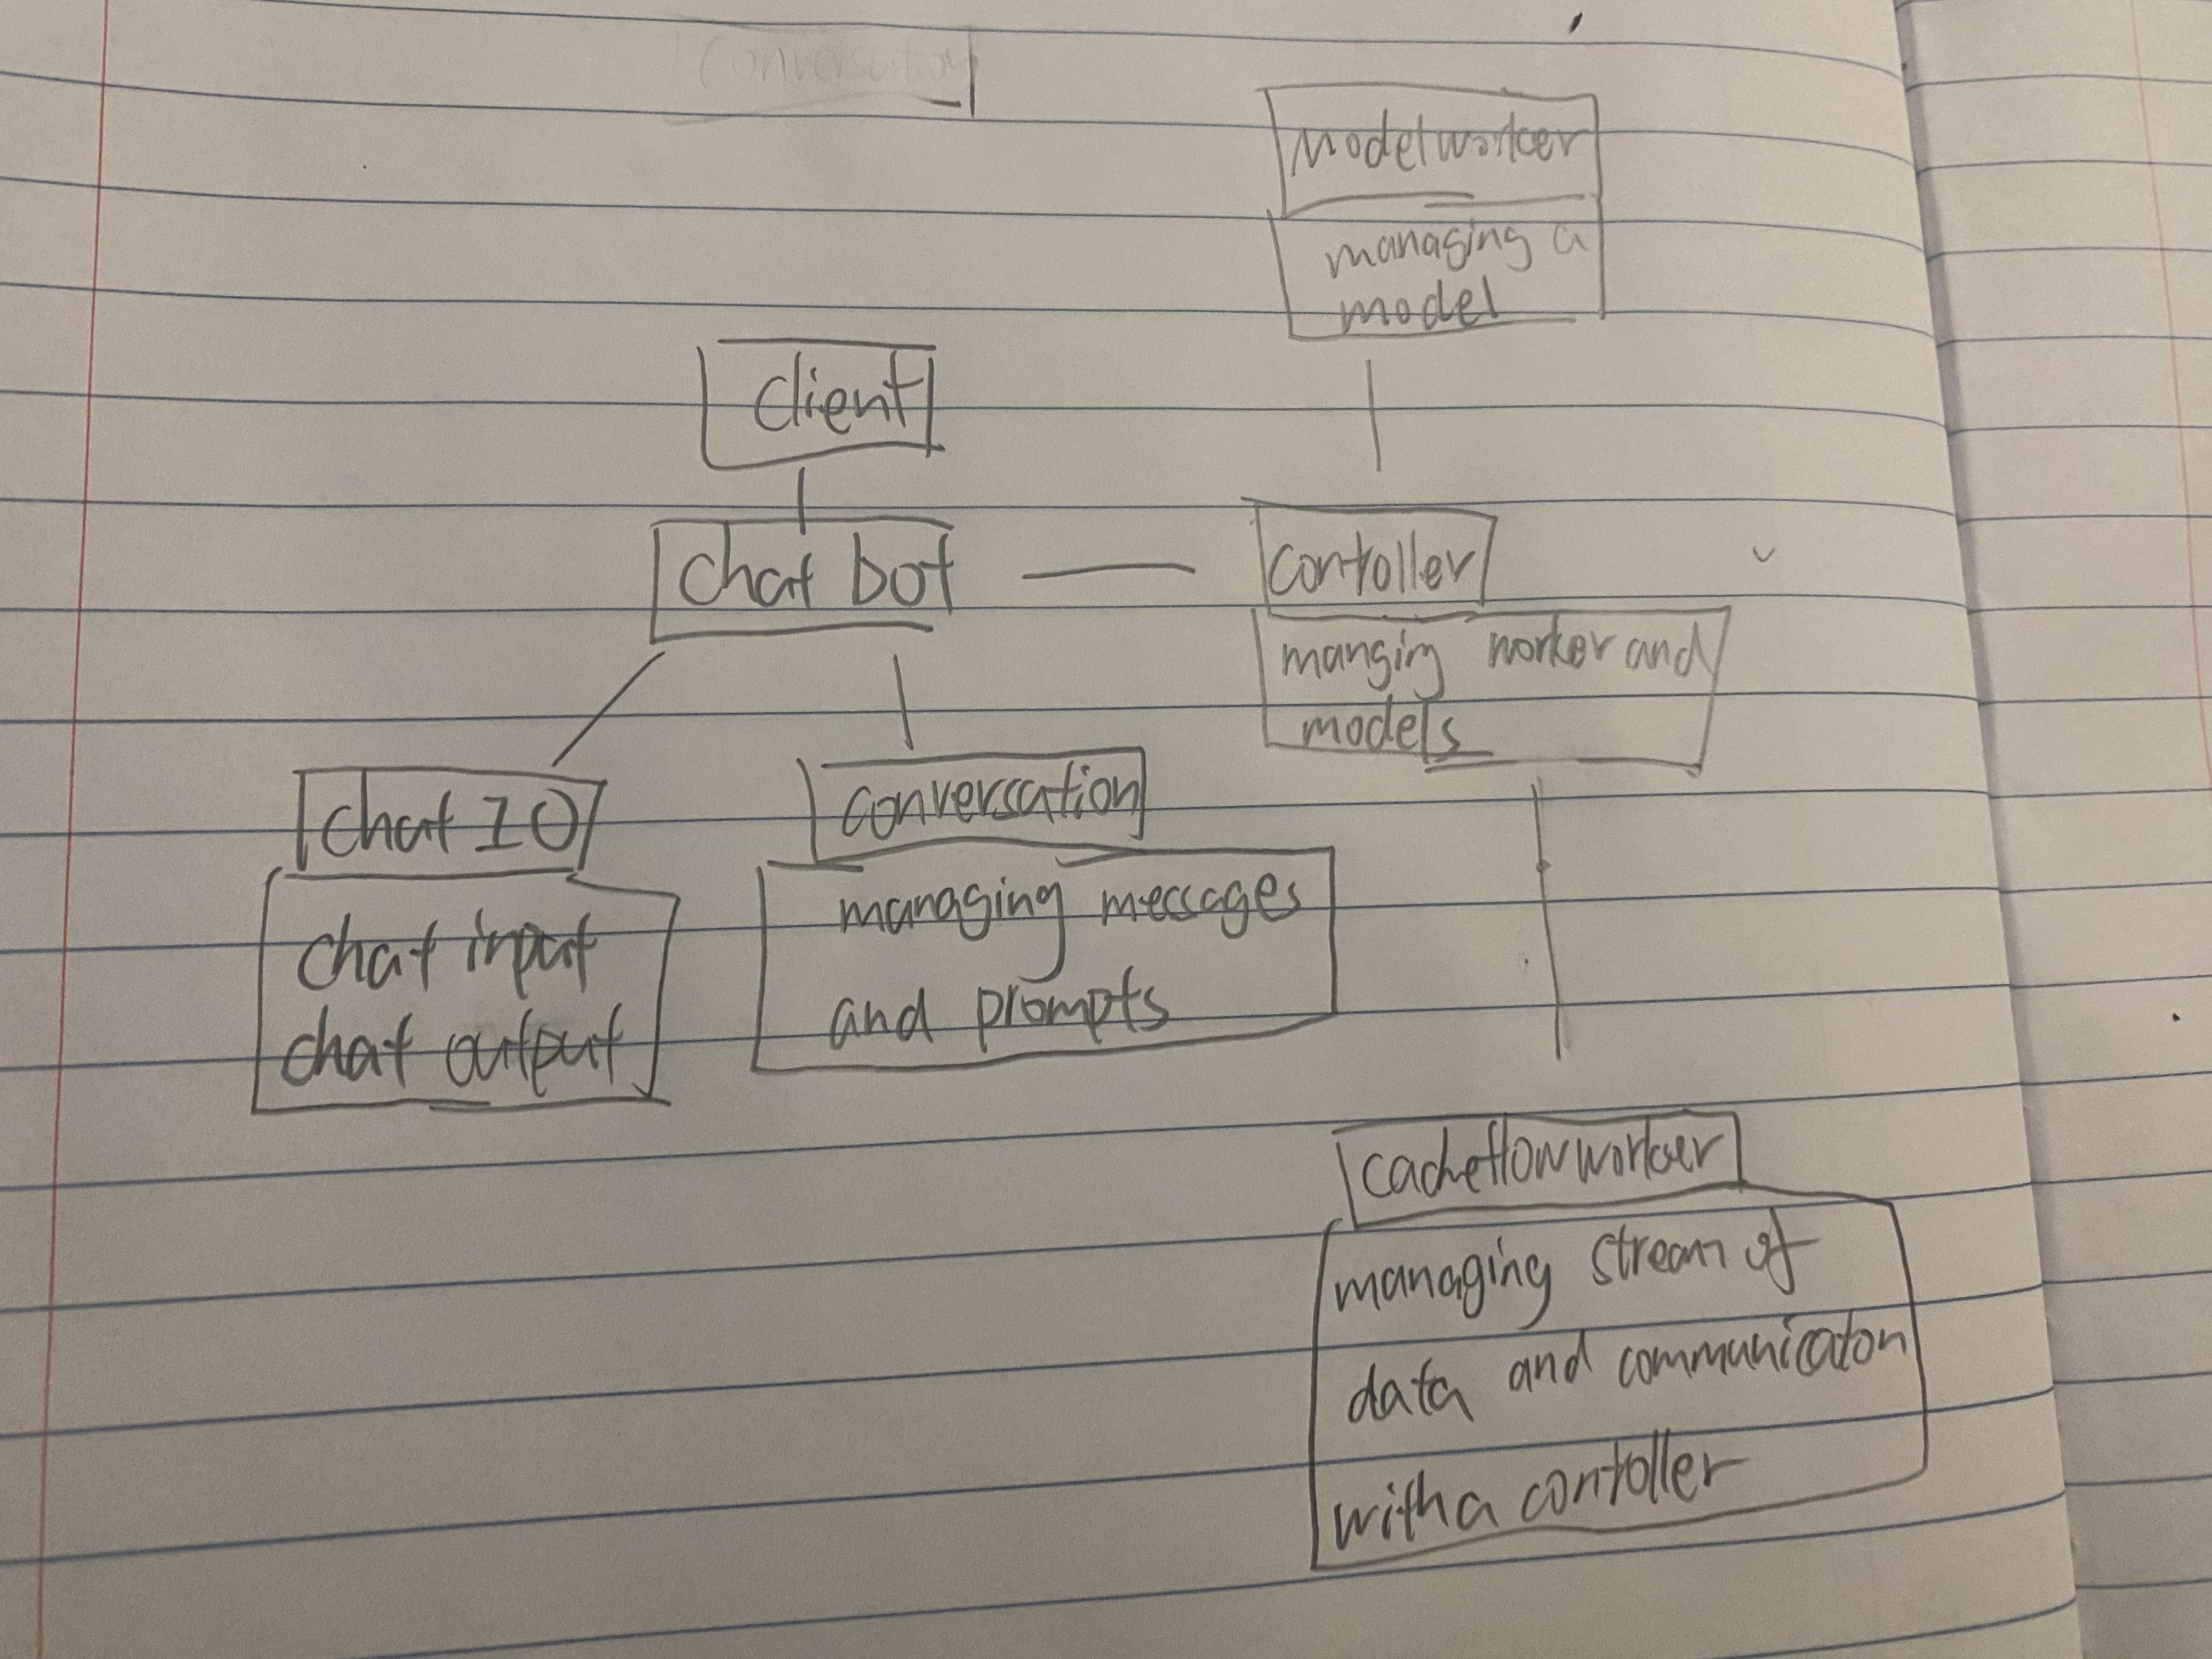 conversation
modelworker
managing a
model
client
chat bot
contoller
manging worker and
models
chat IO
chat input
chat output
conversation
managing messages
and prompts
cacheflowworker
managing stream of
data and communicaton
with a contoller